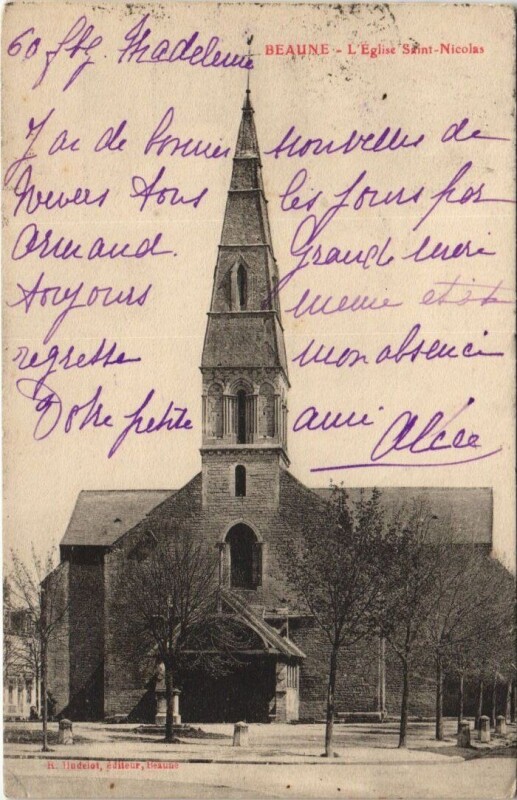 BEAUNE - L'Église Saint-Nicolas
60 fbg Madeleine
J'ai de bonnes nouvelles de
Nevers tous les jours par
Armand. Grande mère
toujours même état
regrette mon absence
Votre petite amie Alice
R. Hudelot, éditeur, Beaune